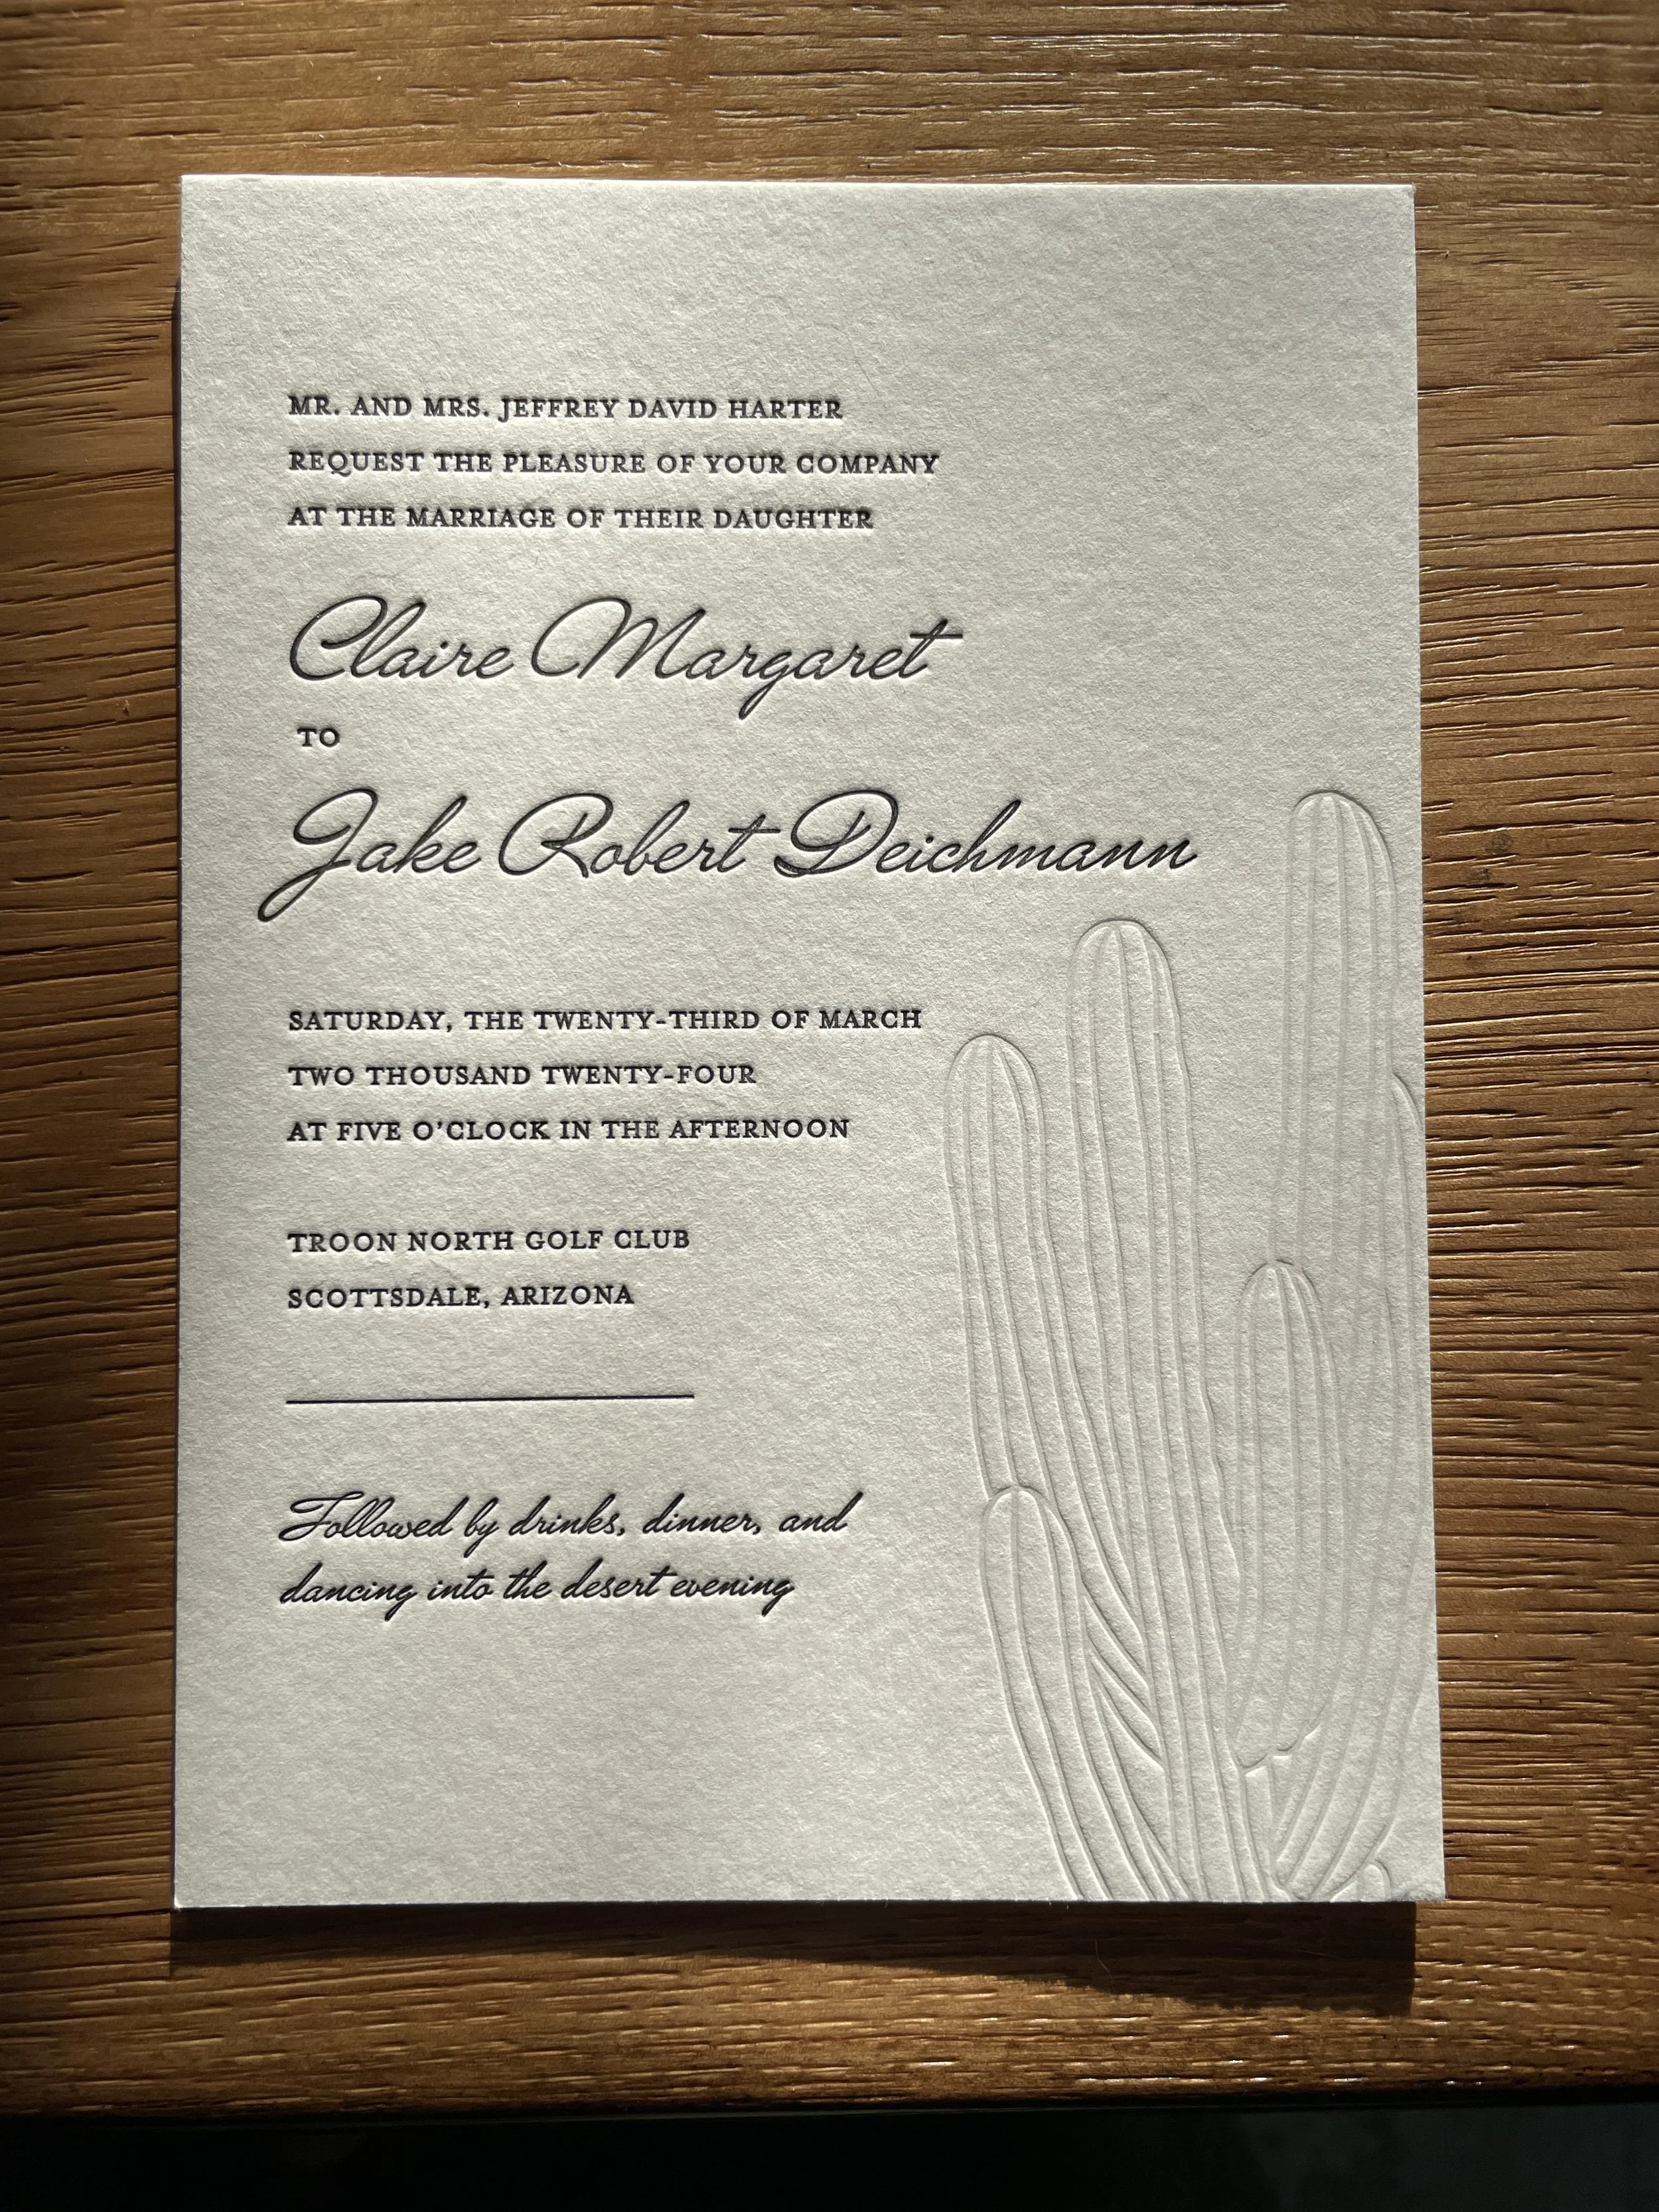 MR. AND MRS. JEFFREY DAVID HARTER
REQUEST THE PLEASURE OF YOUR COMPANY
AT THE MARRIAGE OF THEIR DAUGHTER
Claire Margaret
TO
Jake Robert Deichmann
SATURDAY, THE TWENTY-THIRD OF MARCH
TWO THOUSAND TWENTY-FOUR
AT FIVE O'CLOCK IN THE AFTERNOON
TROON NORTH GOLF CLUB
SCOTTSDALE, ARIZONA
Followed by drinks, dinner, and
dancing into the desert evening